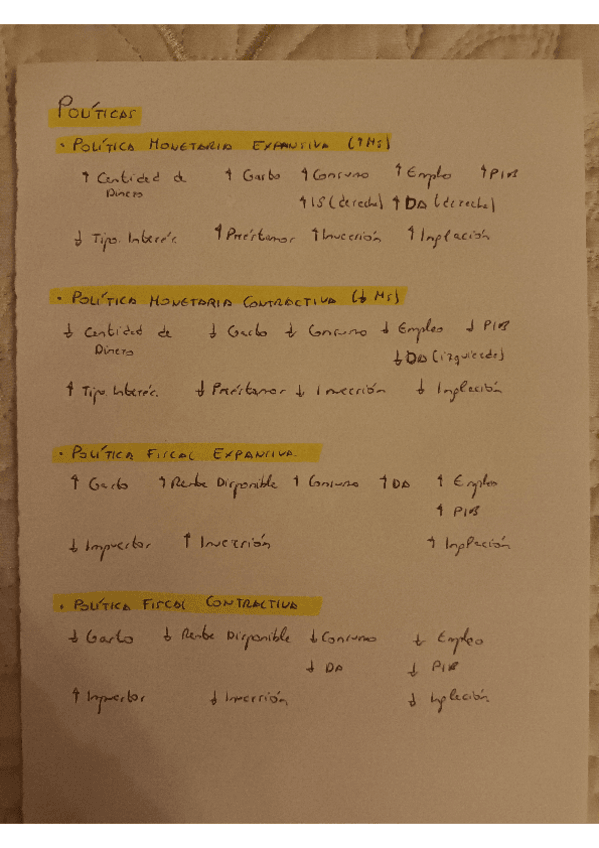 POLÍTICAS
· POLÍTICA MONETARIA EXPANSIVA (↑Ms)
↑ Cantidad de Dinero ↑ Gasto ↑ Consumo ↑ Empleo ↑ PIB
↑ IS (derecha) ↑ DA (derecha)
↓ Tipo. Interés. ↑ Préstamos ↑ Inversión ↑ Inflación
· POLÍTICA MONETARIA CONTRACTIVA (↓ Ms)
↓ Cantidad de Dinero ↓ Gasto ↓ Consumo ↓ Empleo ↓ PIB
↓ DA (izquierda)
↑ Tipo. Interés. ↓ Préstamos ↓ Inversión ↓ Inflación
· POLÍTICA FISCAL EXPANSIVA.
↑ Gasto ↑ Renta Disponible ↑ Consumo ↑ DA ↑ Empleo
↑ PIB
↓ Impuestos ↑ Inversión ↑ Inflación
· POLÍTICA FISCAL CONTRACTIVA
↓ Gasto ↓ Renta Disponible ↓ Consumo ↓ Empleo
↓ DA ↓ PIB
↑ Impuestos ↓ Inversión ↓ Inflación